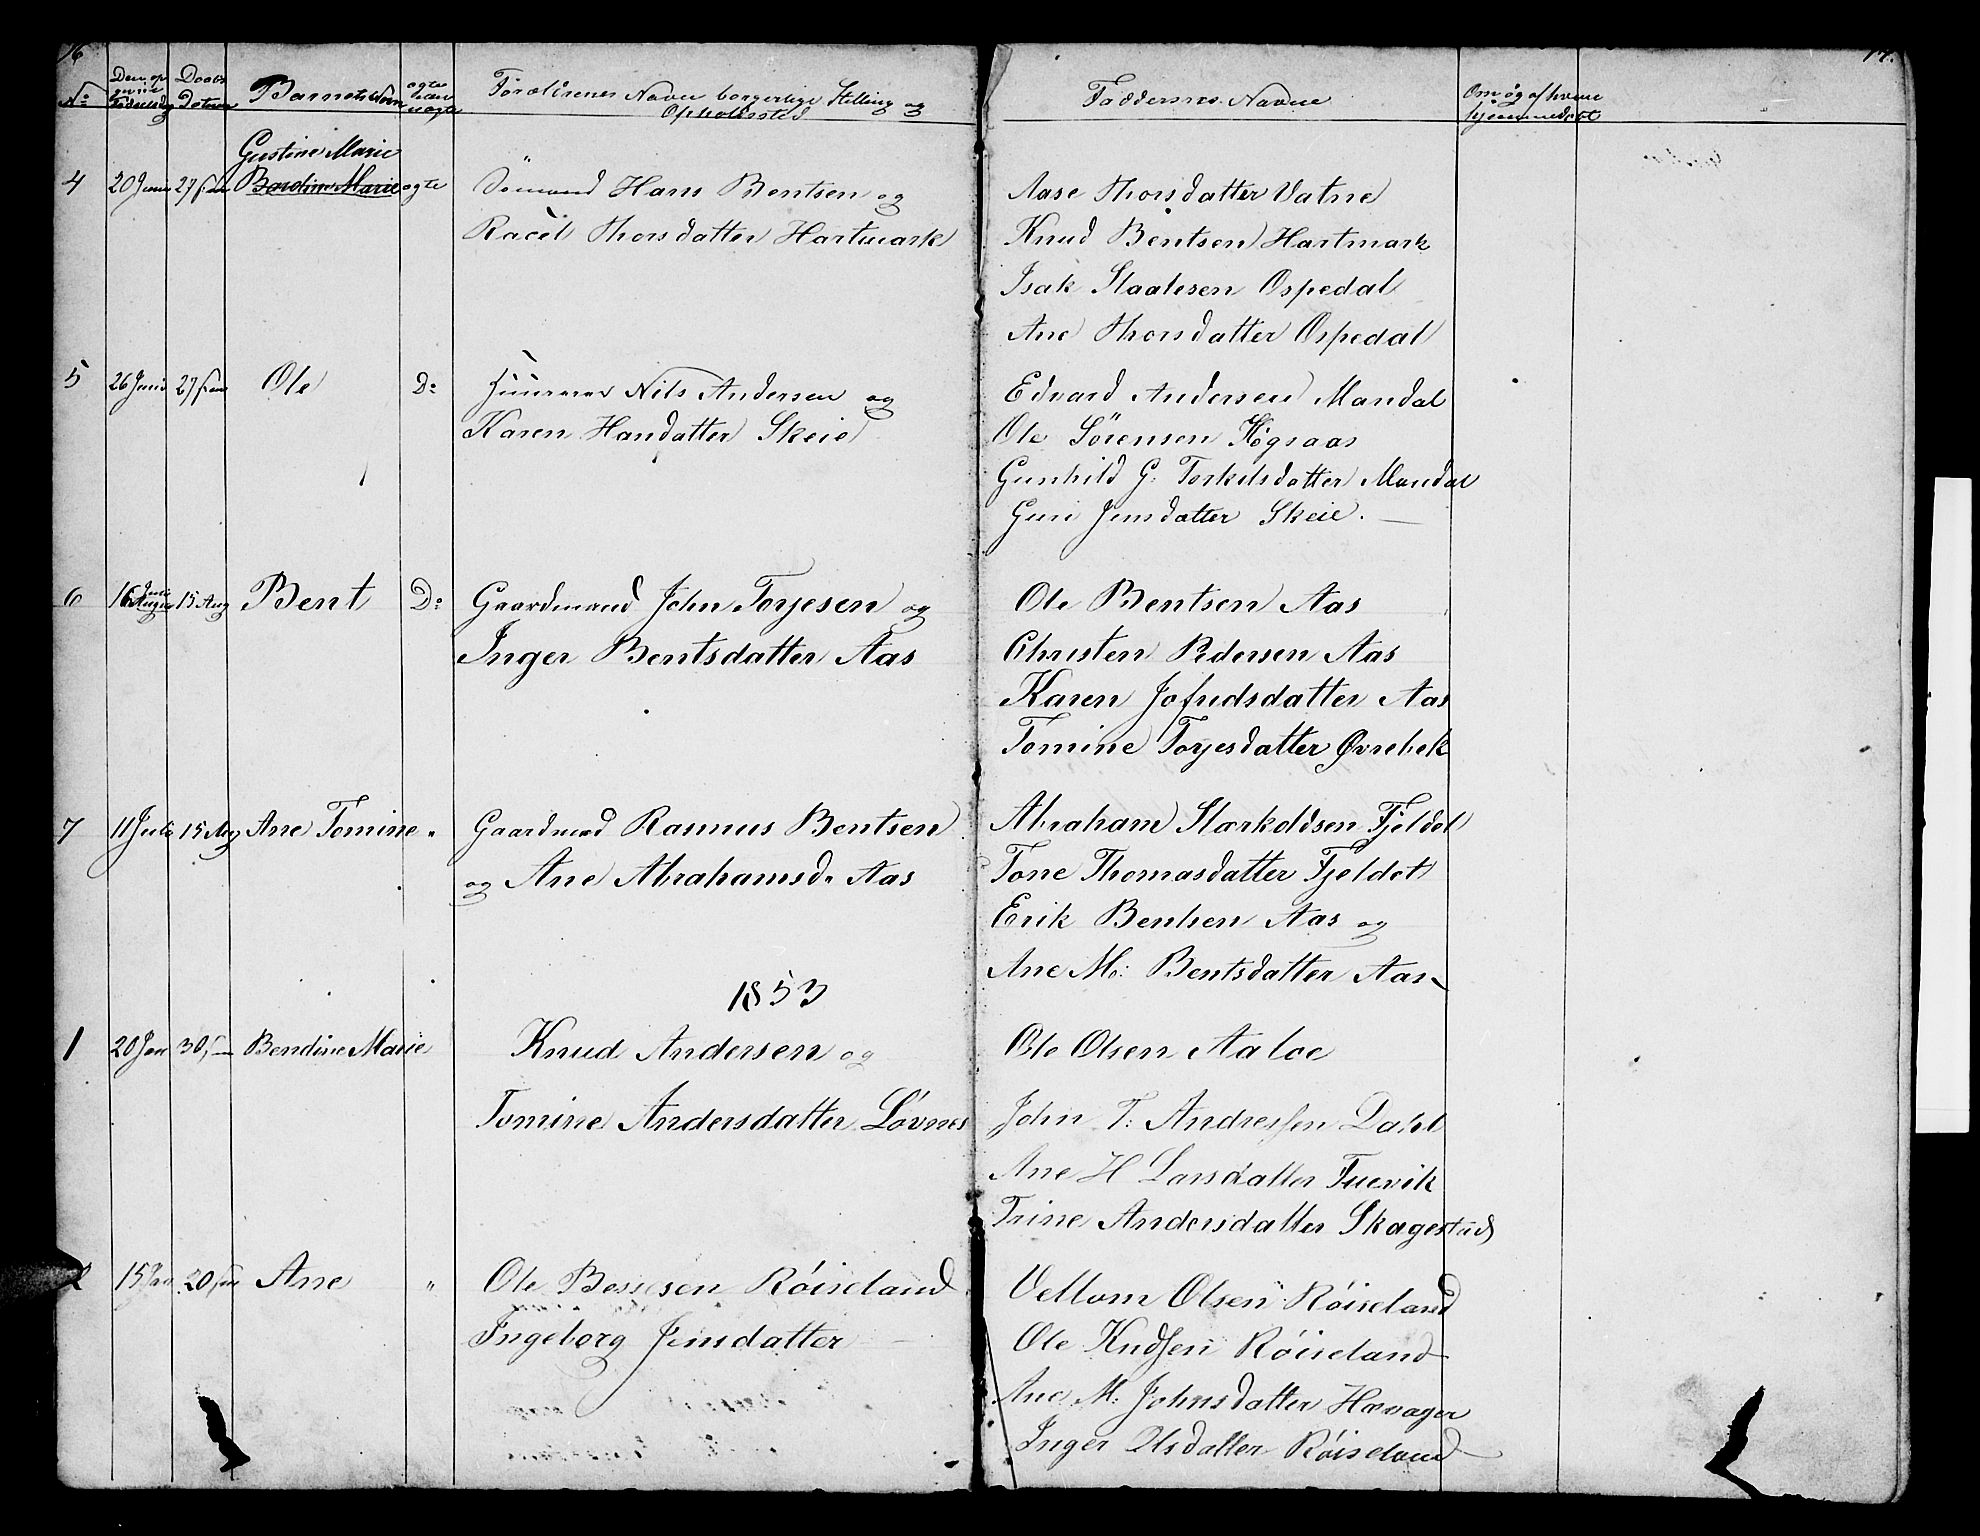 16
17.
No
Den op
givne
Fødselsdag
Daabs
Datum
Barnets Navn
ægte
eller
uægte
Forældrenes Navn borgerlige Stilling og
Opholdssted
Faddernes Navne
Om og af hvem
hjemmedøbt
Gustine Marie
4 20 Juni 27 Juni Bardine Marie ægte Sömand Hans Bentsen og
Racel Thorsdatter Hartmark
Aase Thorsdatter Vatne
Knud Bentsen Hartmark
Isak Staalesen Ospedal
Ane Thorsdatter Ospedal
5 26 Juni 27 Juni Ole Do Nils Andersen og
Karen Handatter Skeie
Edvard Andersen Mandal
Ole Sörensen Högsaas
Gunhild G: Torkilsdatter Mandal
Guri Jensdatter Skeie.
6 16 Juli 15 Aug Bent Do Gaardmand John Torjesen og
Inger Bentsdatter Aas
Ole Bentsen Aas
Christen Pedersen Aas
Karen Jofridsdatter Aas
Tomine Torjesdatter Øvrebek
7 11 Juli 15 Aug Ane Tomine " Gaardmad Rasmus Bentsen
og Ane Abrahamsd. Aas
Abraham Stærkoldsen Fjeldet
Tone Thomasdatter Fjeldet
Erik Bentsen Aas og
Ane M: Bentsdatter Aas
1853
1 20 Jan 30 Jan Bendine Marie Knud Andersen og
Tomine Andersdatter Lövnes
Ole Olsen Aaloe
John T: Andressen Dahl
Ane H Larsdatter Tuevik
Trine Andersdatter Skagestad
2 15 Jan 20 Jan Ane " Ole Bessesen Röiseland
Ingeborg Jensdatter
Vellom Olsen Röiseland
Ole Knudsen Röiseland
Ane M. Johnsdatter Hævager
Inger Olsdatter Röiseland